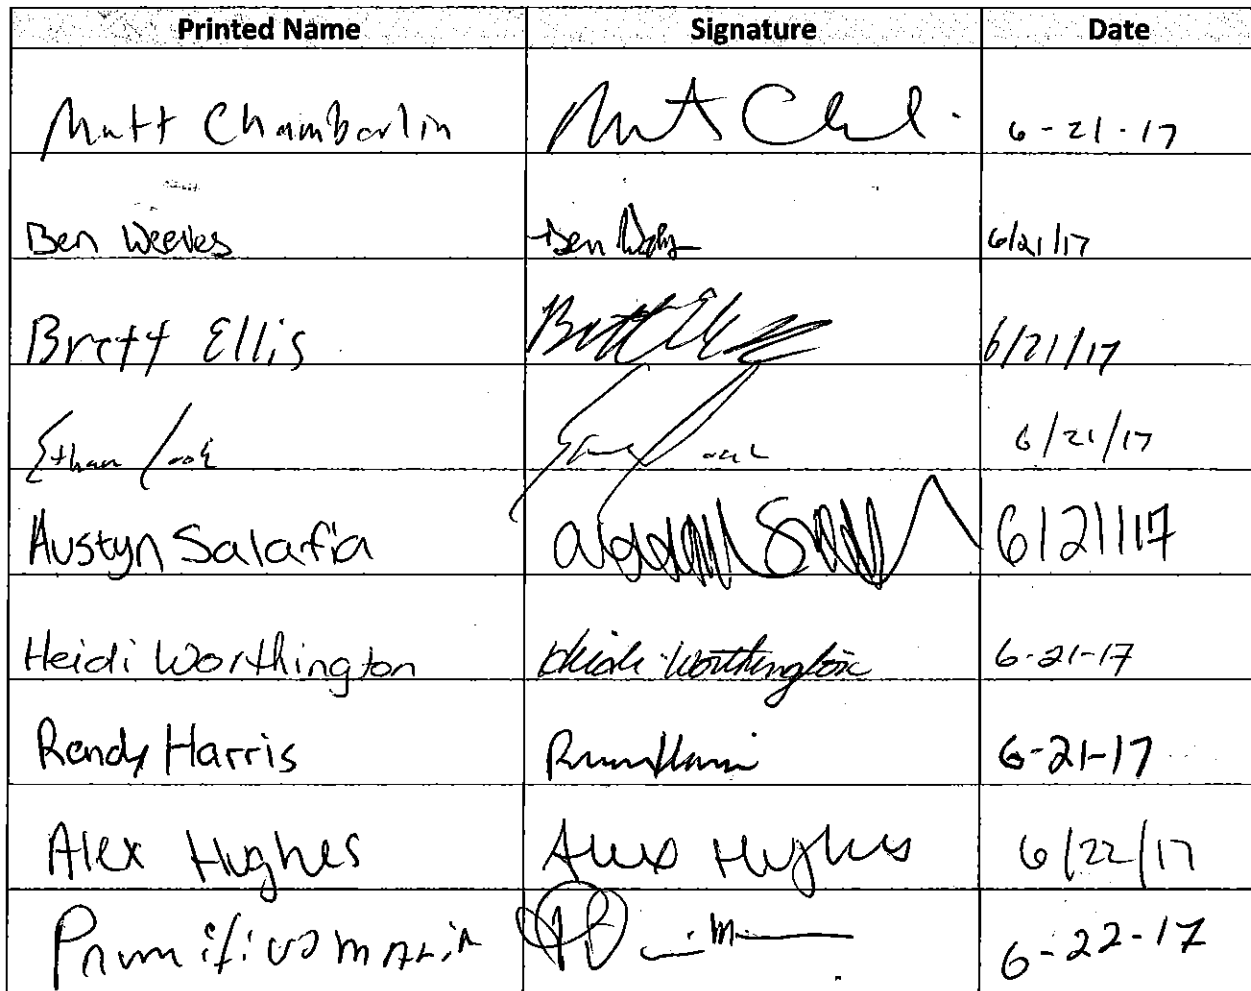 Printed Name Signature Date
Matt Chamberlin Matt Ch 6-21-17
Ben Weeves Ben 6/21/17
Brett Ellis Brett Ellis 6/21/17
Ethan 6/21/17
Austyn Salafia 6/21/17
Heidi Worthington Heidi Worthington 6-21-17
Randy Harris 6-21-17
Alex Hughes Alex Hughes 6/22/17
Primitivo Marin 6-22-17